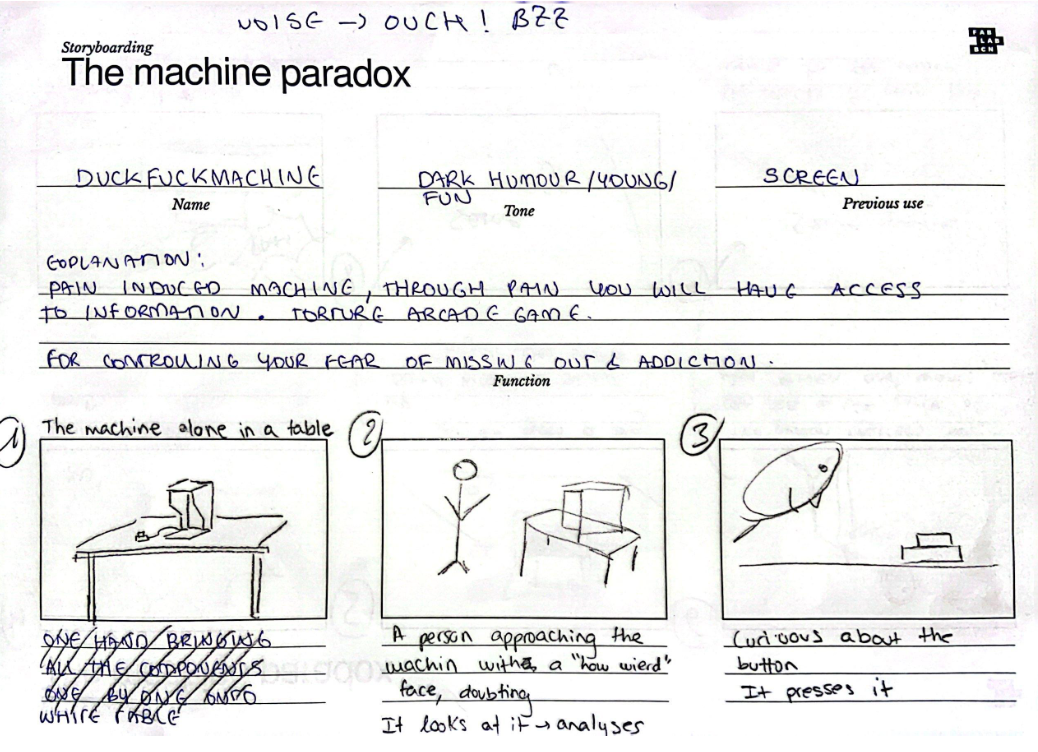 NOISE → OUCH! BZZ
Storyboarding
The machine paradox
FAB
LAB
BCN
DUCKFUCKMACHINE
Name
DARK HUMOUR/YOUNG/
FUN
Tone
SCREEN
Previous use
EXPLANATION:
PAIN INDUCED MACHINE, THROUGH PAIN YOU WILL HAVE ACCESS
TO INFORMATION. TORTURE ARCADE GAME.
FOR CONTROLLING YOUR FEAR OF MISSING OUT & ADDICTION.
Function
1 The machine alone in a table
2
3
ONE HAND BRINGING
ALL THE COMPONENTS
ONE BY ONE ONTO
WHITE TABLE
A person approaching the
machin with a "how wierd"
face, doubting
It looks at it → analyses
Curious about the
button
It presses it